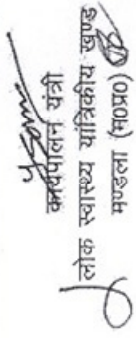 कार्यपालन यंत्री
लोक स्वास्थ्य यांत्रिकीय खण्ड
मण्डला (म0प्र0)